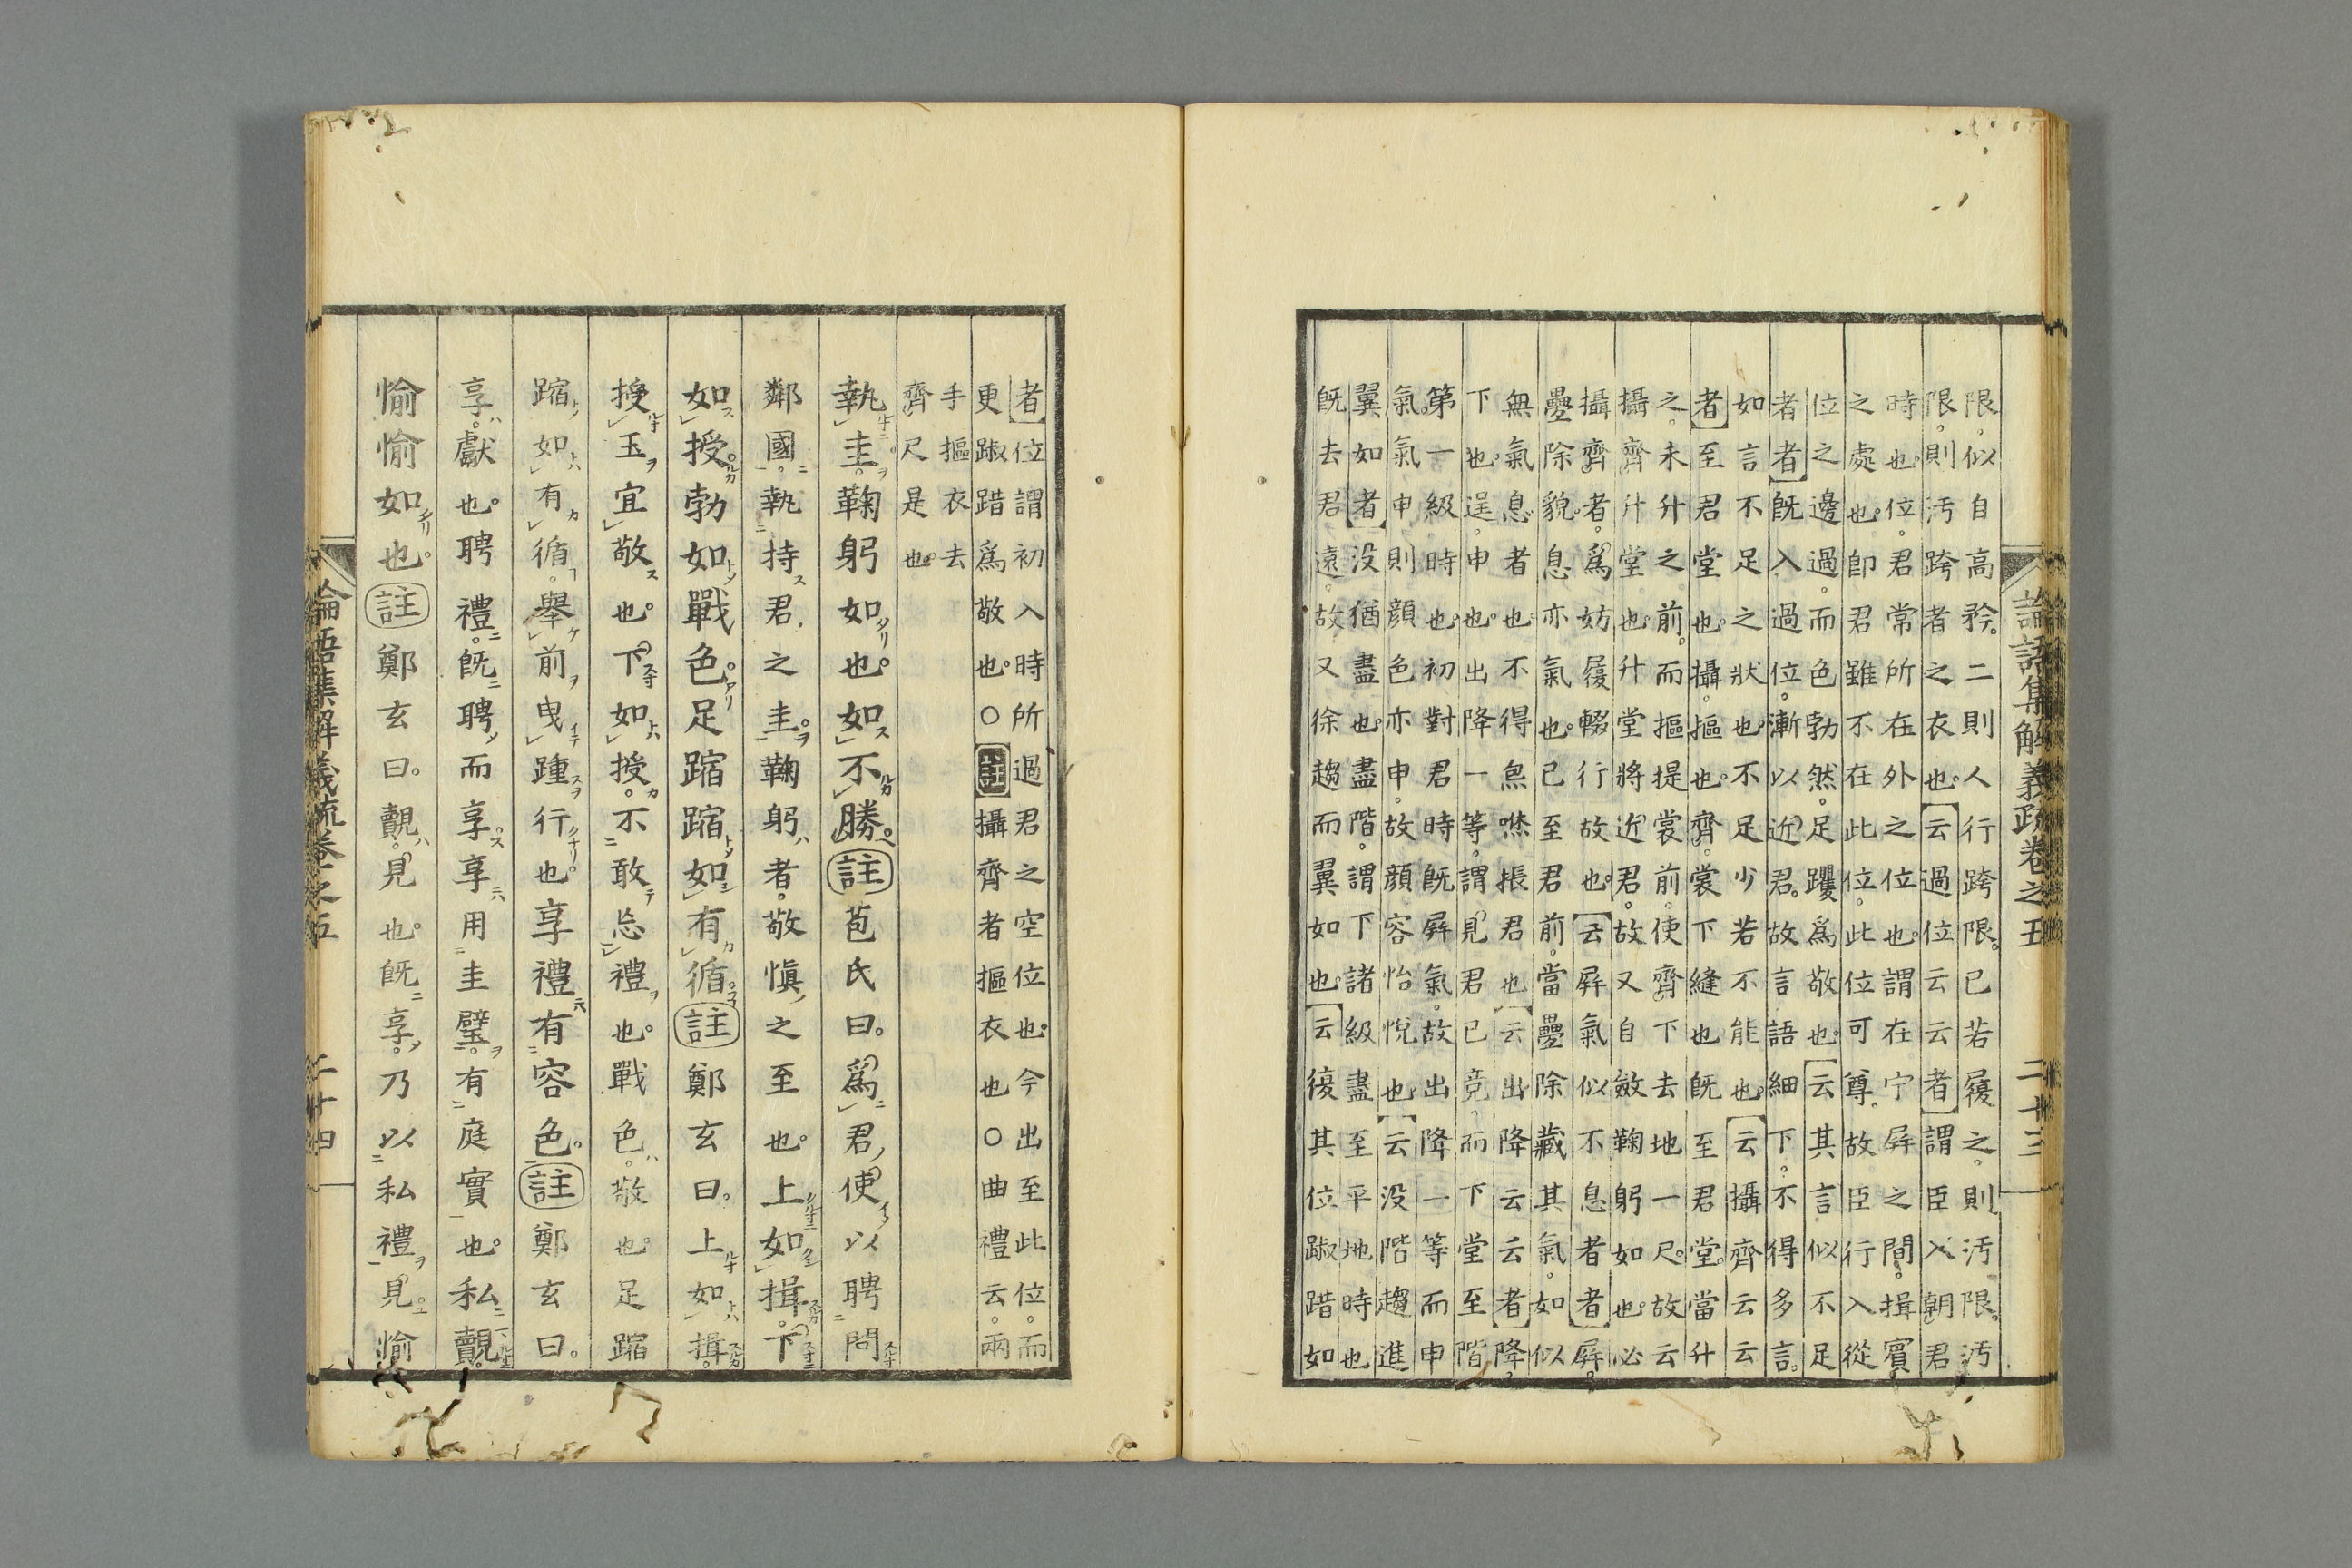 論語集解義疏卷之五
二十三
限似自高矜二則人行跨限已若履之則汚限汚
限則汚跨者之衣也云過位云云者謂臣入朝君
時也位君常所在外之位也謂在宁屏之間揖賓
之處也即君雖不在此位此位可尊故臣行入從
位之邊過而色勃然足躩爲敬也云其言似不足
者者既入過位漸以近君故言語細下不得多言
如言不足之狀也不足少若不能也云攝齊云云
者至君堂也攝摳也齊裳下縫也既至君堂當升
之未升之前而摳提裳前使齊下去地一尺故云
攝齊升堂也升堂將近君故又自斂鞠躬如也必
攝齊者爲妨履輟行故也云屏氣似不息者者屏
疊除貌息亦氣也已至君前當疊除藏其氣如似
無氣息者也不得無㗭張君也云出降云云者降
下也逞申也出降一等謂見君已竟而下堂至階
第一級時也初對君時既屏氣故出降一等而申
氣氣申則顔色亦申故顔容怡悅也云没階趨進
翼如者没猶盡也盡階謂下諸級盡至平地時也
既去君遠故又徐趨而翼如也云復其位踧踖如
者位謂初入時所過君之空位也今出至此位而
更踧踖爲敬也○註攝齊者摳衣也○曲禮云兩
手摳衣去
齊尺是也
執圭鞠躬如也如不勝註苞氏曰爲君使以聘問
鄰國執持君之圭鞠躬者敬愼之至也上如揖下
如授勃如戰色足蹜蹜如有循註鄭玄曰上如揖
授玉宜敬也下如授不敢忘禮也戰色敬也足蹜
蹜如有循舉前曳踵行也享禮有容色註鄭玄曰
享獻也聘禮既聘而享享用圭璧有庭實也私覿
愉愉如也註鄭玄曰覿見也既享乃以私禮見愉
論語集解義疏卷之五
二十四